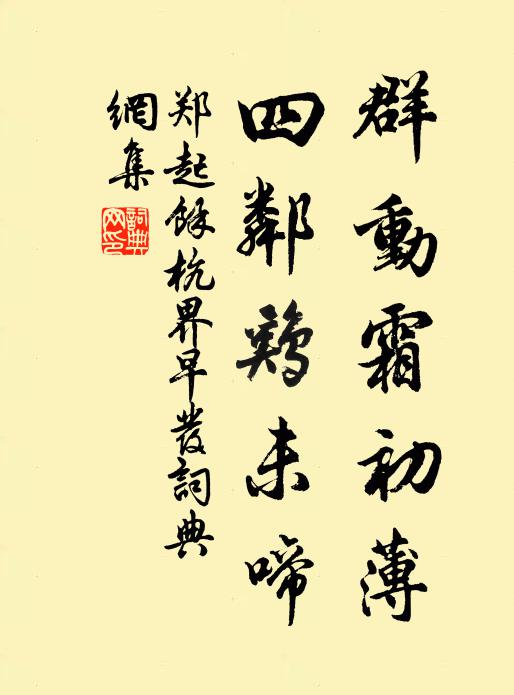 群動霜初薄
四鄰鷄未啼
郑起餘杭界早發詞典
網集
詞典
网印